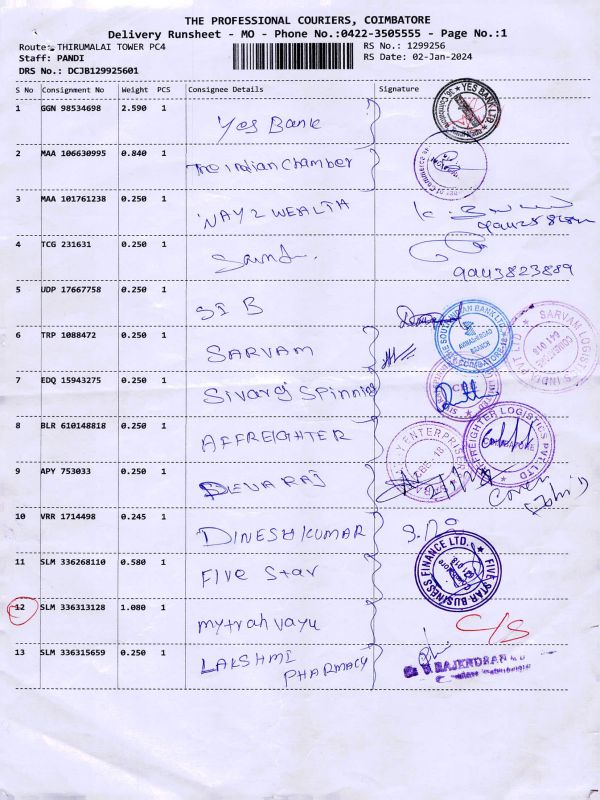 THE PROFESSIONAL COURIERS, COIMBATORE
Delivery Runsheet - MO - Phone No.:0422-3505555 - Page No.:1
Route: THIRUMALAI TOWER PC4
RS No.: 1299256
Staff: PANDI
RS Date: 02-Jan-2024
DRS No.: DCJB129925601
S No Consignment No Weight PCS Consignee Details Signature
1 GGN 98534698 2.590 1 Yes Bank YES BANK LTD.
2 MAA 106630995 0.840 1 The indian Chamber
3 MAA 101761238 0.250 1 WAY 2 WEALTH
4 TCG 231631 0.250 1
9443823889
5 UDP 17667758 0.250 1 SIB
THE SOUTH INDIAN BANK LTD. AVINASHI ROAD BRANCH COIMBATORE-18
6 TRP 1088472 0.250 1 SARVAM SARVAM LOGISTICS INDIA PVT LTD COIMBATORE 641 018
7 EDQ 15943275 0.250 1 Sivaraj Spinning
8 BLR 610148818 0.250 1 AFFREIGHTER FREIGHTER LOGISTICS PVT. LTD
9 APY 753033 0.250 1 DEVARAJ ENTERPRISES
10 VRR 1714498 0.245 1 DINESH KUMAR
11 SLM 336268110 0.580 1 Five Star FIVE STAR BUSINESS FINANCE LTD.
12 SLM 336313128 1.080 1 mytrah vayu C/S
13 SLM 336315659 0.250 1 LAKSHMI PHARMACY
RAJENDRAN